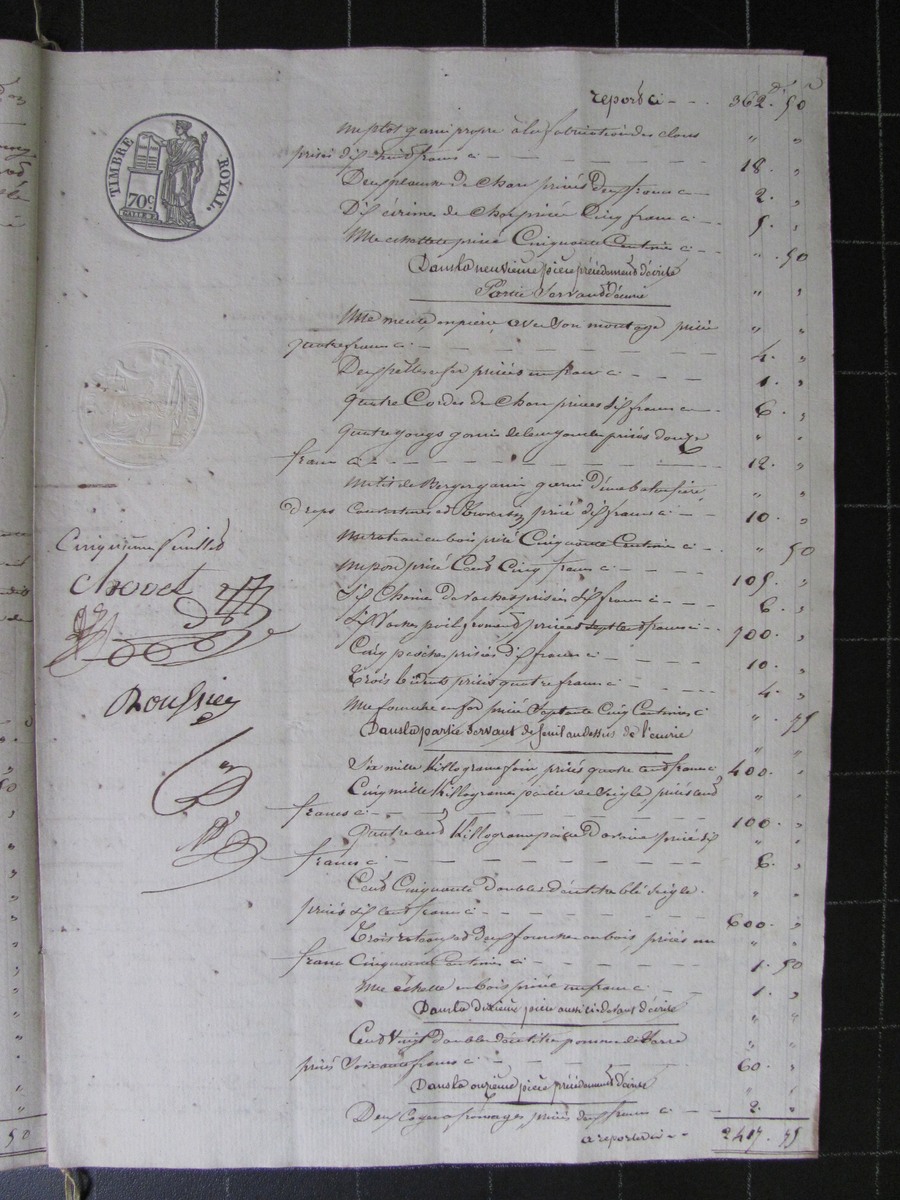 report ci - - - 362. 50
TIMBRE ROYAL.
70c.
un plot garni propre à la fabrication des clous " "
prisés dix huit francs ci - - - 18. "
Deux de char prisés deux francs ci - 2. "
Dix de char prisés Cinq francs ci - 5. "
Une prisé Cinquante Centimes ci - " . 50
Dans la neuvième pièce précédemment décrite
Partie Servant d'écurie " "
Une meule en pierre avec son montage prisée " "
quatre francs ci - - - 4. "
Deux pelles en fer prisées un franc ci - - - 1. "
quatre Cordes de Char prisées Six francs ci - 6. "
quatre jougs garnis de prisés douze " "
francs ci - - - 12. "
un lit de Berger garni d'une " "
draps Couvertures et prisé dix francs ci - 10. "
un rateau en bois prisé Cinquante Centimes ci - " 50
un prisé Cent Cinq francs ci - - - 105. "
Six Chaines de vaches prisées Six francs ci - - 6. "
Six Vaches poil froment prisées Sept cent francs ci - - 700. "
Cinq prisés dix francs ci - - - 10. "
Trois prisés quatre francs ci - - - 4. "
Une fourche en fer prisée Septante Cinq Centimes ci " . 75
Dans la partie Servant de fenil au dessus de l'écurie
" "
Six mille Killogrames foin prisés quatre cent francs ci 400. "
Cinq mille Killogrames paille de Seigle prisés cent " "
francs ci - - - 100. "
quatre cent Killogrames paille d'avoine prisés Six "
francs ci - - - 6. "
Cent Cinquante doubles décalitres blé Seigle " "
prisés Six Cent francs ci - - - 600. "
Trois rateaux et deux fourches en bois prisés un " "
franc Cinquante Centimes ci - - - 1. 50
Une échelle en bois prisée un franc ci - - - 1. "
Dans la dixième pièce aussi ci devant décrite
" "
Cent Vingt doubles décalitres pommes de terre " "
prisés Soixante francs ci - - - 60. "
Dans la onzième pièce précédemment décrite
" "
Deux fromages prisés deux francs ci - - 2. "
a reporter ci - - 2417. 75
Cinquième feuillet
Chovet
Roussier